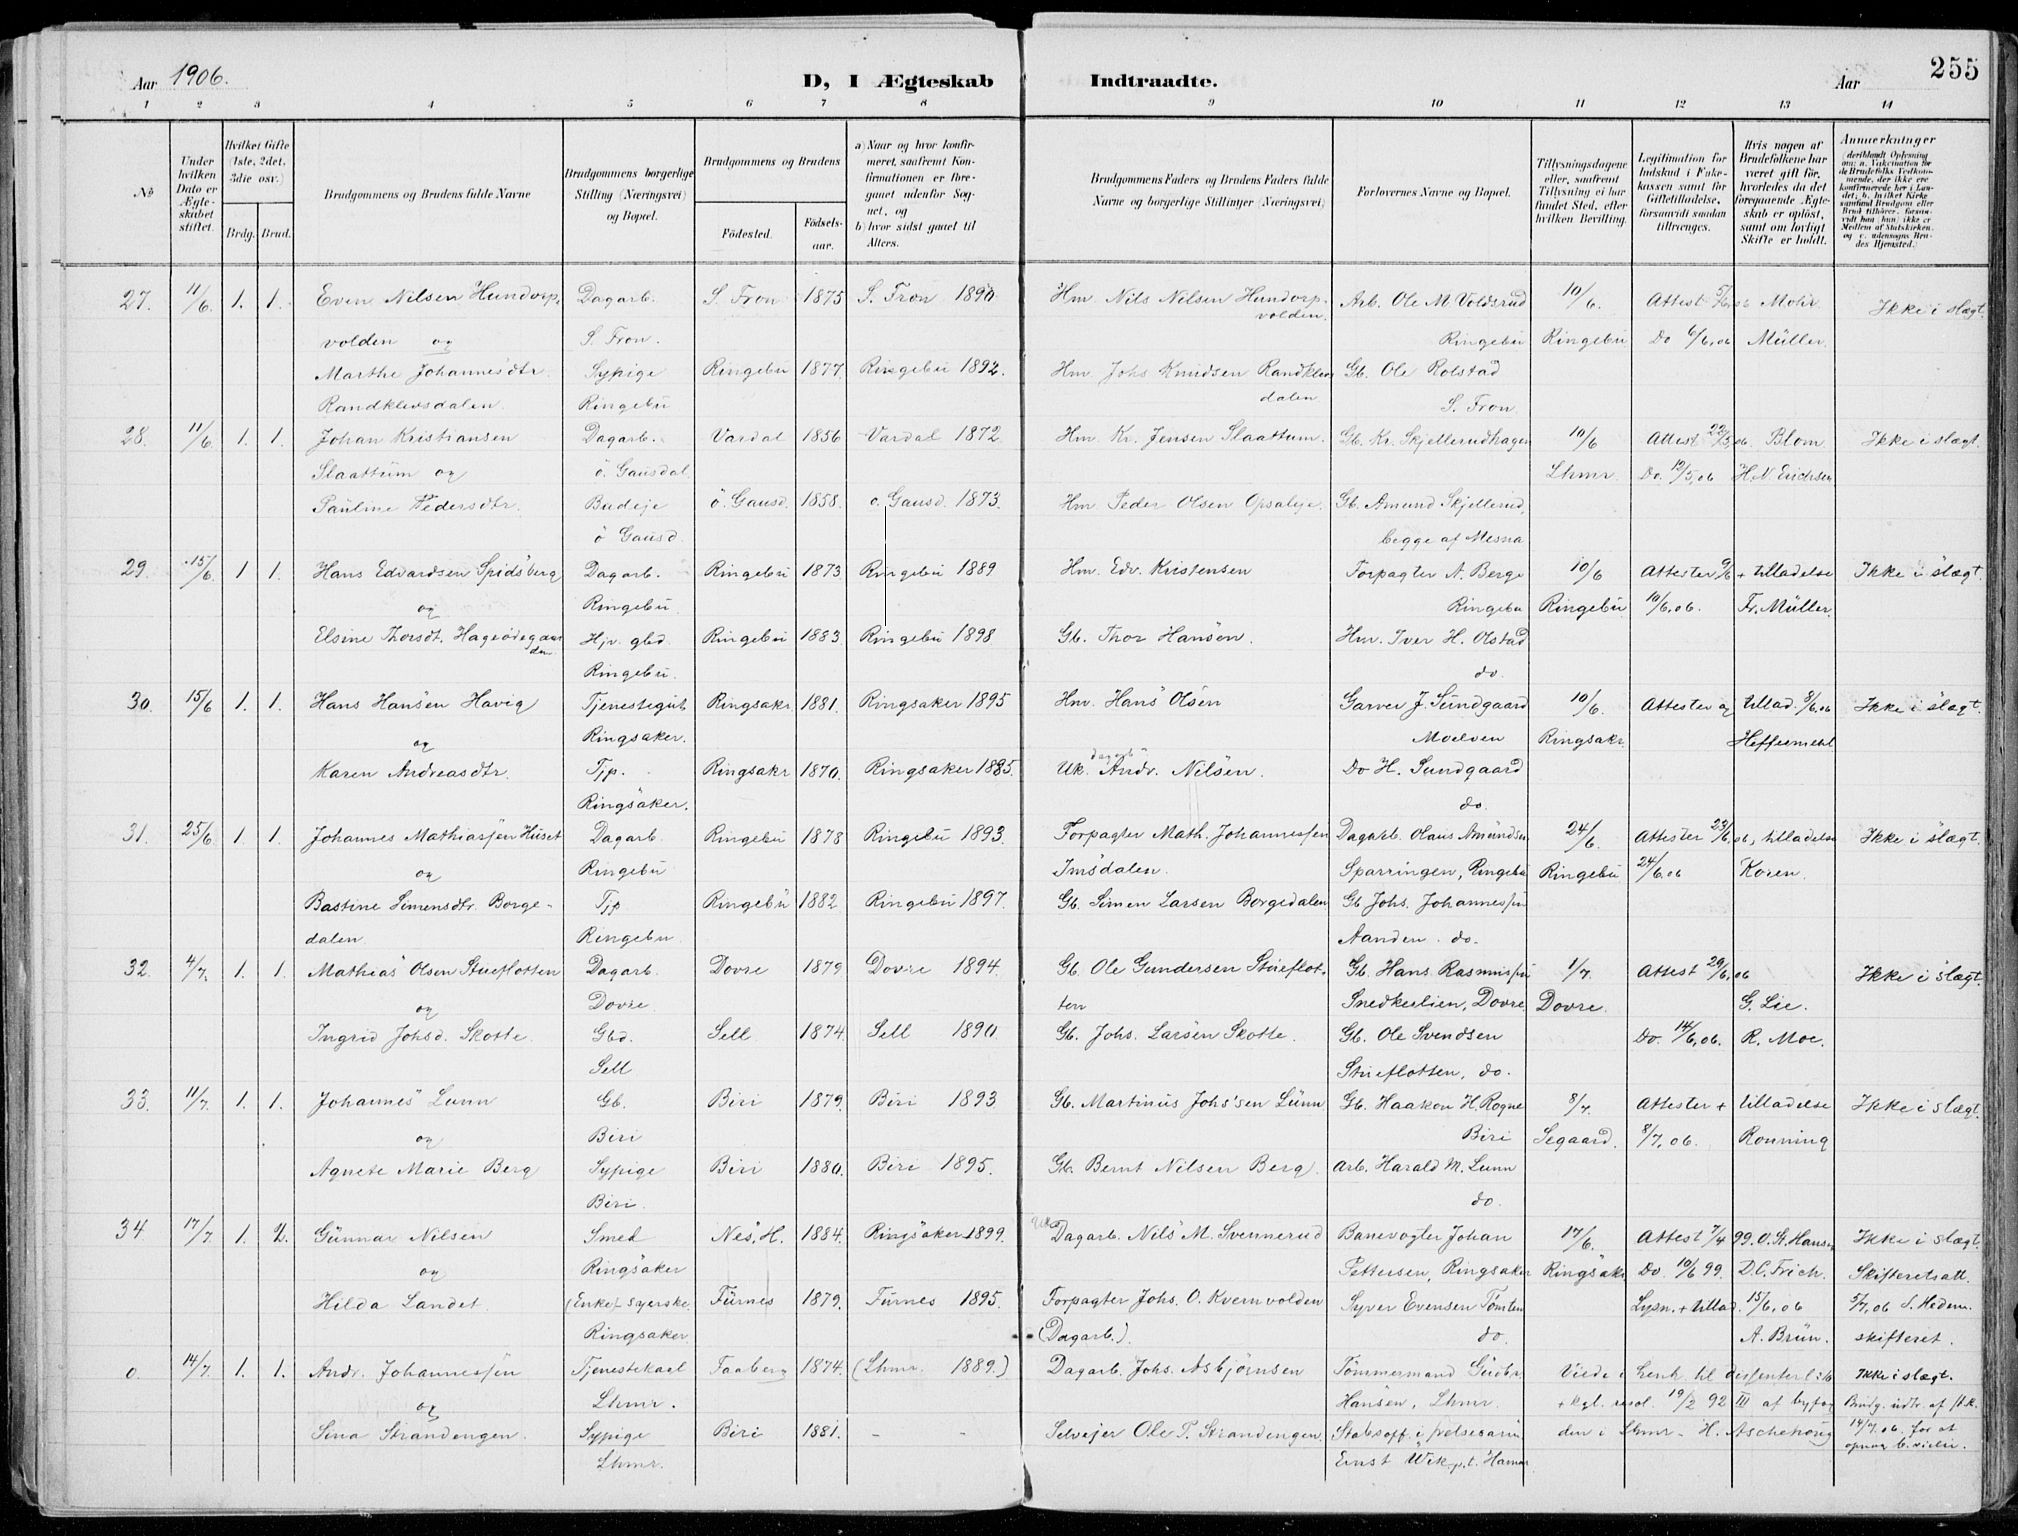 Aar 1906.
D, I Ægteskab Indtraadte.
Aar
255
1 2 3 4 5 6 7 8 9 10 11 12 13 14
No
Under hvilken Dato er Ægteskabet stiftet.
Hvilket Gifte (1ste, 2det, 3die osv.)
Brdg. Brud.
Brudgommens og Brudens fulde Navne
Brudgommens borgerlige Stilling (Næringsvei) og Bopæl.
Brudgommens og Brudens
Fødested. Fødselsaar.
a) Naar og hvor konfirmeret, saafremt Konfirmationen er foregaaet udenfor Sognet, og
b) hvor sidst gaaet til Alters.
Brudgommens Faders og Brudens Faders fulde Navne og borgerlige Stillinger (Næringsvei)
Forlovernes Navne og Bopæl.
Tillysningsdagene eller, saafremt Tillysning ei har fundet Sted, efter hvilken Bevilling.
Legitimation for Indskud i Enkekassen samt for Giftetilladelse, forsaavidt saadan tiltrænges.
Hvis nogen af Brudefolkene har været gift før, hvorledes da det foregaaende Ægteskab er opløst, samt om lovligt Skifte er holdt.
Anmærkninger
27. 11/6. 1. 1. Even Nilsen Hundorp, Dagarb. S. Fron 1875 S. Fron 1890 Hm Nils Nilsen Hundorp- Arb. Ole M. Voldsrud 10/6. Attest 5/6 06 Mohr. Ikke i slægt.
volden og S. Fron. volden. Ringebu Ringebu Do 6/6,06 Müller.
Marthe Johannesdtr. Sypige Ringebu 1877. Ringebu 1892. Hm Johs Knudsen Randklev Gb. Ole Rolstad
Randklevsdalen. Ringebu dalen S. Fron.
28. 11/6 1. 1. Johan Kristiansen Dagarb. Vardal 1856 Vardal 1872. Hm. Kr. Jensen Slaattum. Gb. Kr. Skjellerudhagen 10/6 Attest 22/5,06. Blom. Ikke i slægt.
Slaattum og ö. Gausdal. Lhmr. Do. 19/5,06 H. N. Erichsen
Pauline Pedersdtr. Budeje ö. Gausd. 1858. ö. Gausd. 1873. Hm Peder Olsen Opsalye. Gb. Amund Skjellerud,
ö Gausd. begge af Mesna
29. 15/6 1 1. Hans Edvardsen Spidsberg Dagarb. Ringebu 1873 Ringebu 1889 Hm. Edv. Kristensen Forpagter A. Berge 10/6 Attester 9/6 + tilladelse Ikke i slægt.
og Ringebu. Ringebu Ringebu 10/6,06. Fr. Müller.
Elsine Thorsdt. Hageødegaarden Hjv. gbd. Ringebu 1883. Ringebu 1898 Gb. Thor Hansen. Hm. Iver H. Olstad
Ringebu. do.
30. 15/6 1. 1. Hans Hansen Havig Tjenestegut Ringsakr 1881. Ringsaker 1895 Hm. Hans Olsen Garver J. Sundgaard 10/6. Attester og tillad. 8/6.06 Ikke i slægt.
og Ringsaker. Moelven Ringsakr. Heffermehl
Karen Andreasdtr. Tjp. Ringsakr 1870. Ringsaker 1885. Uk. dagarb Andr. Nilsen. Do H. Sundgaard
Ringsaker. do.
31. 25/6 1. 1. Johannes Mathiassen Huset Dagarb. Ringebu 1878 Ringebu 1893. Forpagter Math. Johannessen Dagarb. Olaus Amundsen 24/6. Attester 23/6,06, tilladelse Ikke i slægt.
og Ringebu Imsdalen. Sparringen, Ringebu Ringebu 24/6.06 Koren.
Bastine Simensdtr. Borge- Tjp. Ringebu 1882 Ringebu 1897. Gb. Simen Larsen Borgedalen Gb Johs. Johannessen
dalen. Ringebu. Aanden. do.
32. 4/7. 1. 1. Mathias Olsen Stueflotten Dagarb. Dovre 1879 Dovre 1894. Gb. Ole Gundersen Stueflot- Gb. Hans Rasmussen 1/7. Attest 29/6,06 Ikke i slægt.
og Dovre. ten Snedkerlien, Dovre Dovre. G. Lie.
Ingrid Johsd. Skotte. Gbd. Sell 1874 Sell 1890. Gb. Johs. Larsen Skotte. Gb. Ole Svendsen Do. 14/6,06. R. Moe.
Sell Stueflotten, do.
33. 11/7. 1. 1. Johannes Lunn Gb. Biri 1879. Biri 1893. Gb. Martinus Johs'sen Lunn Gb. Haakon H. Rogne 8/7. Attester + tilladelse Ikke i slægt.
og Biri Biri Segaard. 8/7,06. Ronning
Agnete Marie Berg Sypige Biri 1880. Biri 1895. Gb. Bernt Nilsen Berg. Arb. Harald M. Lunn
Biri. do
34. 17/7 1. 2. Gunnar Nilsen Smed Nes, H. 1884. Ringsaker 1899. Uk Dagarb. Nils M. Svennerud Banevogter Johan 17/6. Attest 7/4 99. O. K. Hansen Ikke i slægt.
og Ringsaker Pettersen, Ringsaker Ringsakr Do. 10/6 99. D. C. Frich. Skifteretsatt.
Hilda Landet. (Enke) syerske Furnes 1879. Furnes 1895. Forpagter Johs. O. Kvernvolden Syver Evensen Tomten Lysn. + tillad. 15/6,06 5/7,06 S. Hedem.
Ringsaker. (Dagarb.). do. A. Brun. skifteret.
0. 14/7. 1. 1. Andr. Johannessen Tjenestekarl Faaberg 1874. (Lhmr. 1889.) Dagarb. Johs. Asbjørnsen Tømmermand Gudbr. Viede i henh. til dissenterl. Ikke i slægt.
og Lhmr. Hansen, Lhmr. + kgl. resol. 19/2 92 III af byfog Brudg. udtr. af st.k.
Sina Strandengen. Sypige Biri 1881. - - Selvejer Ole P. Strandengen. Stabsoff. i frelsesarm den i Lhmr. H. Aschehoug 14/7.06. for at
Lhmr. Ernst Wik p.t. Hamar